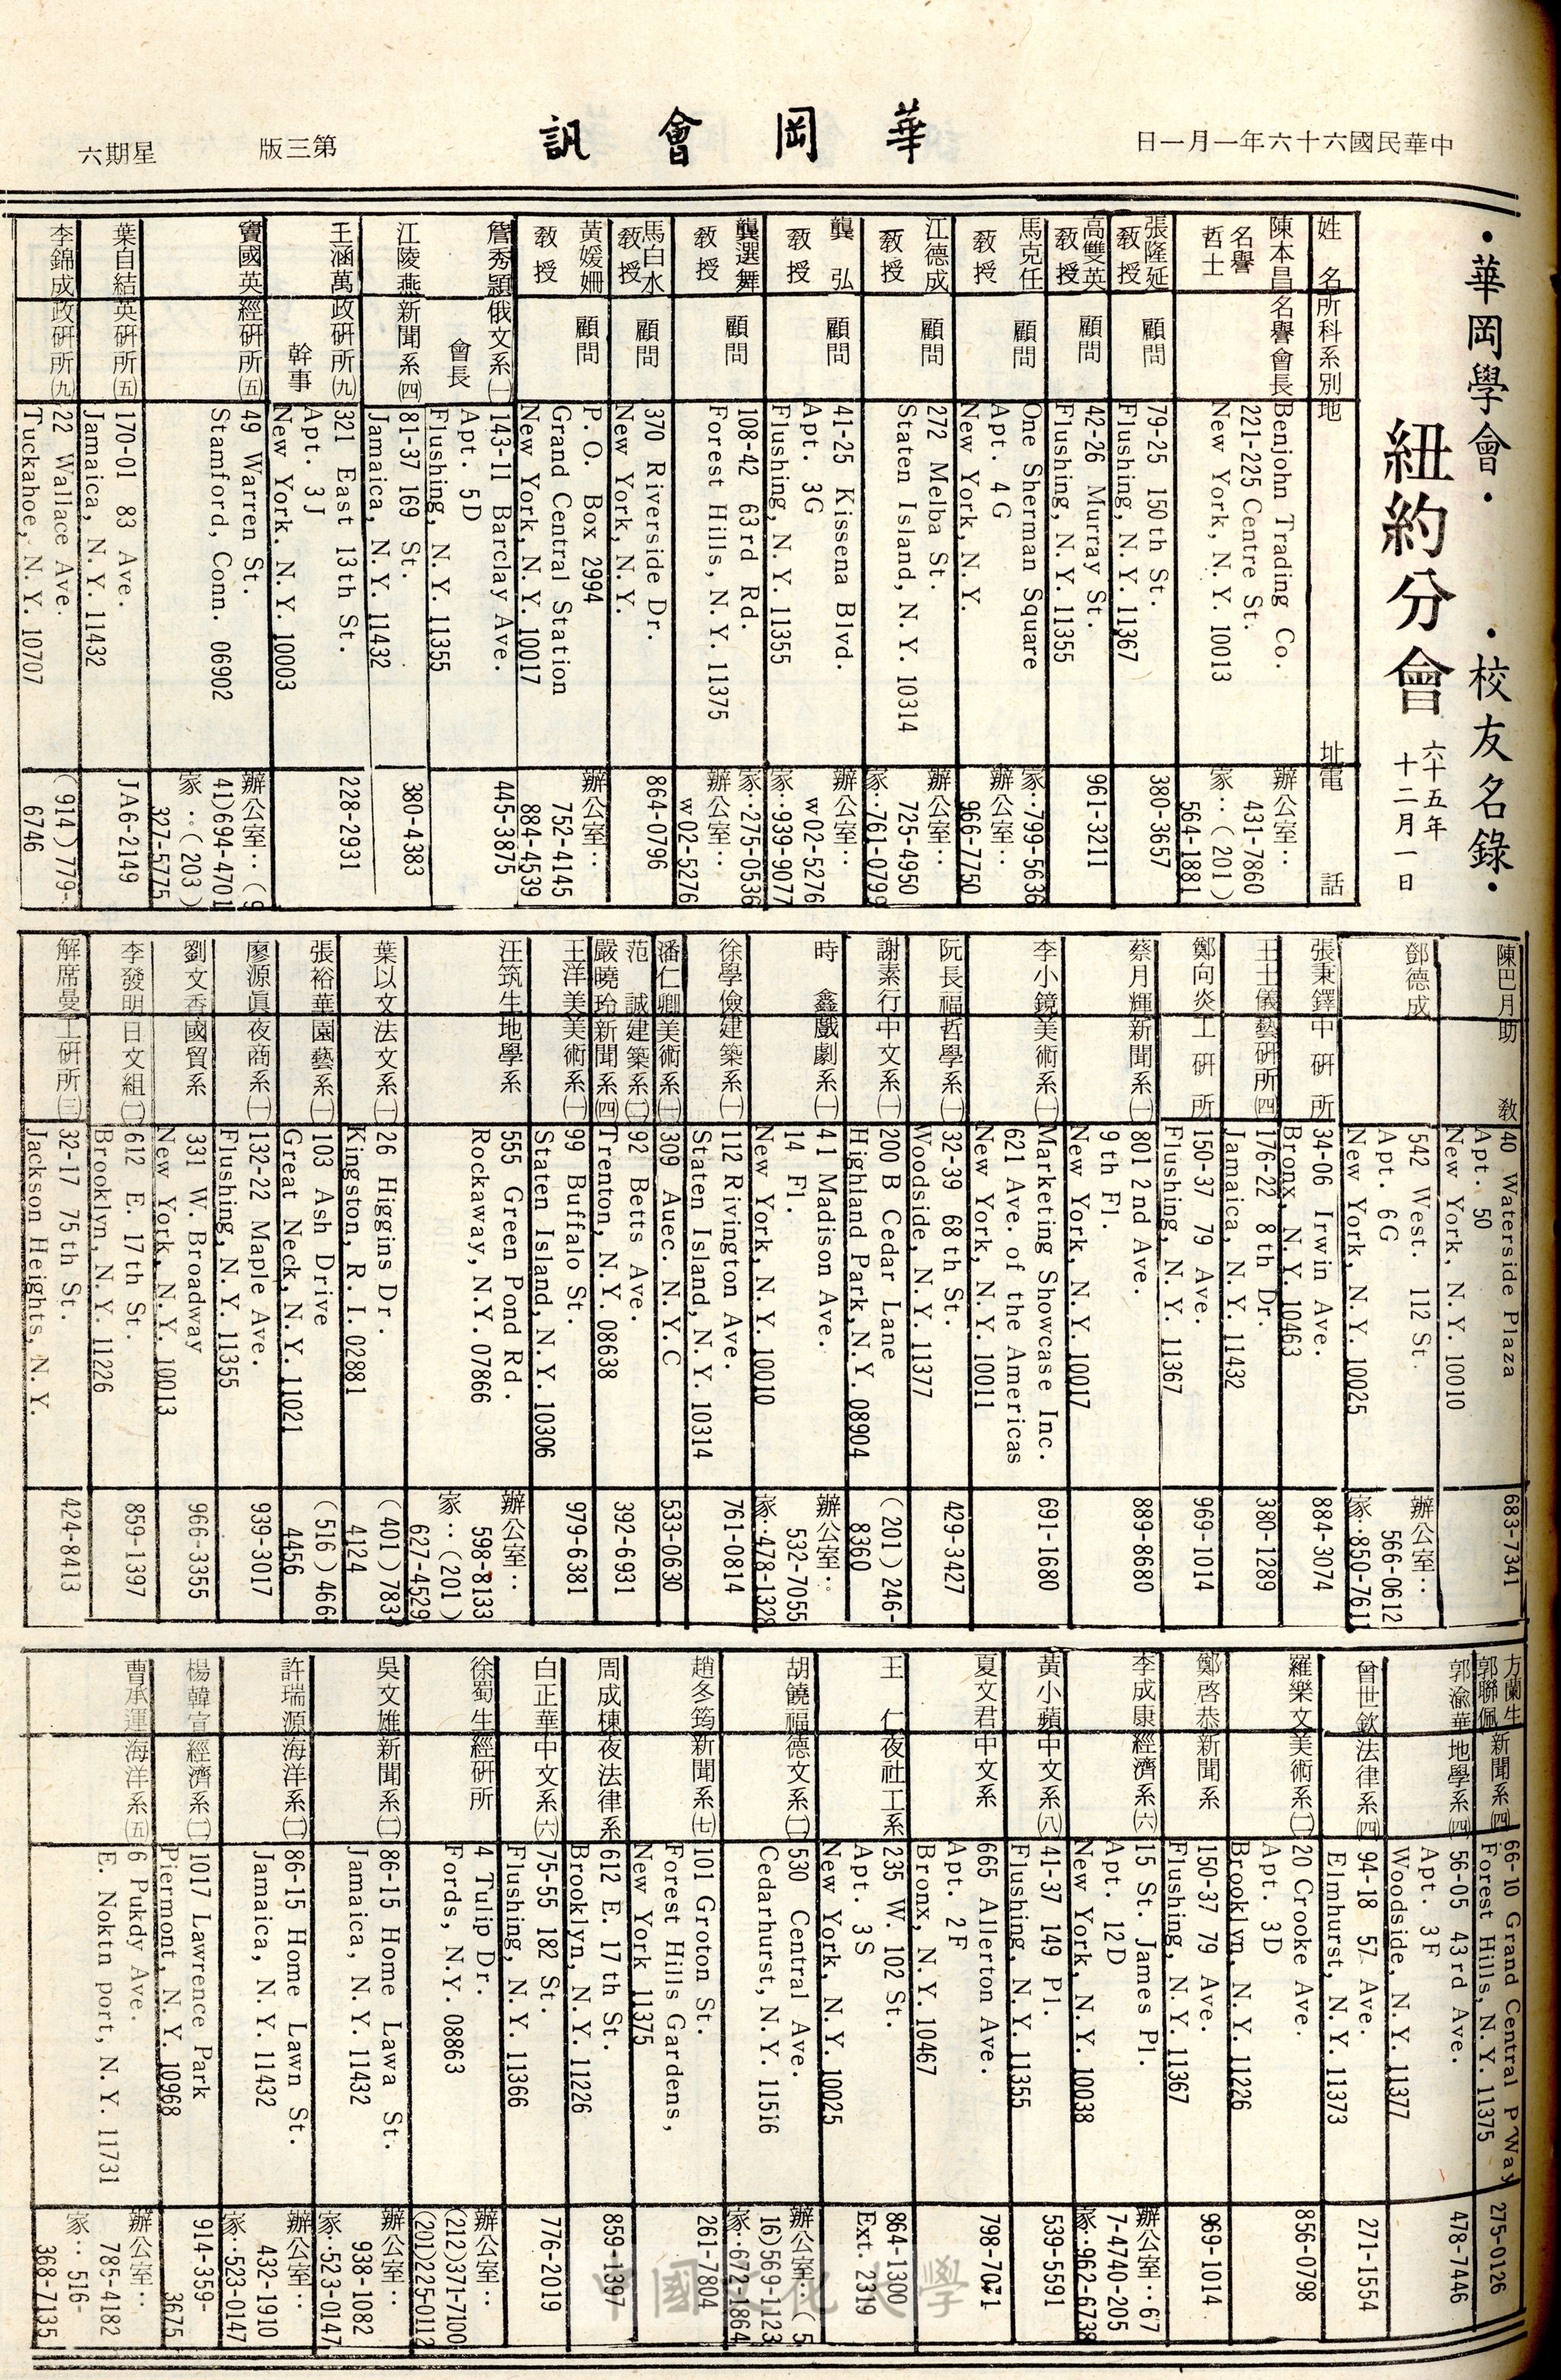 中華民國六十六年一月一日
華岡會訊
第三版
星期六
·華岡學會·
·校友名錄·
紐約分會
六十五年
十二月一日
姓名
所科系別
地址
電話
陳本昌
名譽
哲士
名譽會長
Benjohn Trading Co.
221-225 Centre St.
New York, N.Y. 10013
辦公室:
431-7860
家:(201)
564-1881
張隆延
教授
顧問
79-25 150th St.
Flushing, N.Y. 11367
380-3657
高雙英
教授
顧問
42-26 Murray St.
Flushing, N.Y. 11355
961-3211
馬克任
教授
顧問
One Sherman Square
Apt. 4G
New York, N.Y.
家:799-5636
辦公室:
966-7750
江德成
教授
顧問
272 Melba St.
Staten Island, N.Y. 10314
辦公室:
725-4950
家:761-0799
龔弘
教授
顧問
41-25 Kissena Blvd.
Apt. 3G
Flushing, N.Y. 11355
辦公室:
w02-5276
家:939-9077
龔選舞
教授
顧問
108-42 63rd Rd.
Forest Hills, N.Y. 11375
家:275-0536
辦公室:
w02-5276
馬白水
教授
顧問
370 Riverside Dr.
New York, N.Y.
864-0796
黃媛姍
教授
顧問
P.O. Box 2994
Grand Central Station
New York, N.Y. 10017
辦公室:
752-4145
884-4539
詹秀穎
俄文系㈠
會長
143-11 Barclay Ave.
Apt. 5D
Flushing, N.Y. 11355
445-3875
江陵燕
新聞系㈣
81-37 169 St.
Jamaica, N.Y. 11432
380-4383
王涵萬
政研所㈨
幹事
321 East 13th St.
Apt. 3J
New York, N.Y. 10003
228-2931
竇國英
經研所㈤
49 Warren St.
Stamford, Conn. 06902
辦公室:(9
41)694-4701
家:(203)
327-5775
葉自結
英研所㈤
170-01 83 Ave.
Jamaica, N.Y. 11432
JA6-2149
李錦成
政研所㈨
22 Wallace Ave.
Tuckahoe, N.Y. 10707
(914)779-
6746
陳巴月
助教
40 Waterside Plaza
Apt. 50
New York, N.Y. 10010
683-7341
鄧德成
542 West. 112 St.
Apt. 6G
New York, N.Y. 10025
辦公室:
566-0612
家:850-7611
張秉鐸
中研所
34-06 Irwin Ave.
Bronx, N.Y. 10463
884-3074
王士儀
藝研所㈣
176-22 8th Dr.
Jamaica, N.Y. 11432
380-1289
鄭向炎
工研所
150-37 79 Ave.
Flushing, N.Y. 11367
969-1014
蔡月輝
新聞系
801 2nd Ave.
9th Fl.
New York, N.Y. 10017
889-8680
李小鏡
美術系
Marketing Showcase Inc.
621 Ave. of the Americas
New York, N.Y. 10011
691-1680
阮長福
哲學系
32-39 68th St.
Woodside, N.Y. 11377
429-3427
謝素行
中文系
200B Cedar Lane
Highland Park, N.Y. 08904
(201)246-
8360
時鑫
戲劇系
41 Madison Ave.
14 Fl.
New York, N.Y. 10010
辦公室:
532-7055
家:478-1328
徐學儉
建築系
112 Rivington Ave.
Staten Island, N.Y. 10314
761-0814
潘仁卿
美術系
309 Auec. N.Y.C
533-0630
范誠
建築系
嚴曉玲
新聞系㈣
92 Betts Ave.
Trenton, N.Y. 08638
392-6931
王洋美
美術系
99 Buffalo St.
Staten Island, N.Y. 10306
979-6381
汪筑生
地學系
555 Green Pond Rd.
Rockaway, N.Y. 07866
辦公室:
598-8133
家:(201)
627-4529
葉以文
法文系
26 Higgins Dr.
Kingston, R.I. 02881
(401)783-
4124
張裕華
園藝系
103 Ash Drive
Great Neck, N.Y. 11021
(516)466-
4456
廖源眞
夜商系
132-22 Maple Ave.
Flushing, N.Y. 11355
939-3017
劉文香
國貿系
331 W. Broadway
New York, N.Y. 10013
966-3355
李發明
日文組
612 E. 17th St.
Brooklyn, N.Y. 11226
859-1397
解席曼
工研所
32-17 75th St.
Jackson Heights, N.Y.
424-8413
方蘭生
郭聯佩
新聞系㈣
66-10 Grand Central P'Way
Forest Hills, N.Y. 11375
275-0126
郭渝華
地學系㈣
56-05 43rd Ave.
Apt. 3F
Woodside, N.Y. 11377
478-7446
曾世欽
法律系㈣
94-18 57 Ave.
Elmhurst, N.Y. 11373
271-1554
羅樂文
美術系
20 Crooke Ave.
Apt. 3D
Brooklyn, N.Y. 11226
856-0798
鄭啓恭
新聞系
150-37 79 Ave.
Flushing, N.Y. 11367
969-1014
李成康
經濟系㈥
15 St. James Pl.
Apt. 12D
New York, N.Y. 10038
辦公室:677-4740-205
家:962-6738
黃小蘋
中文系㈧
41-37 149 Pl.
Flushing, N.Y. 11355
539-5591
夏文君
中文系
665 Allerton Ave.
Apt. 2F
Bronx, N.Y. 10467
798-7071
王仁
夜社工系
235 W. 102 St.
Apt. 3S
New York, N.Y. 10025
864-1300
Ext. 2319
胡饒福
德文系
530 Central Ave.
Cedarhurst, N.Y. 11516
辦公室:(5
16)569-1123
家:672-1864
趙冬筠
新聞系㈦
101 Groton St.
Forest Hills Gardens,
New York 11375
261-7804
周成棟
夜法律系
612 E. 17th St.
Brooklyn, N.Y. 11226
859-1397
白正華
中文系㈥
75-55 182 St.
Flushing, N.Y. 11366
776-2019
徐蜀生
經研所
4 Tulip Dr.
Fords, N.Y. 08863
辦公室:
(212)371-7100
(201)225-0112
吳文雄
新聞系
86-15 Home Lawa St.
Jamaica, N.Y. 11432
辦公室:
938-1082
家:523-0147
許瑞源
海洋系
86-15 Home Lawn St.
Jamaica, N.Y. 11432
辦公室:
432-1910
家:523-0147
楊韓宣
經濟系
1017 Lawrence Park
Piermont, N.Y. 10968
914-359-
3675
曹承運
海洋系㈤
6 Pukdy Ave.
E. Noktn port, N.Y. 11731
辦公室:
785-4182
家:516-
368-7135
中國文化大學